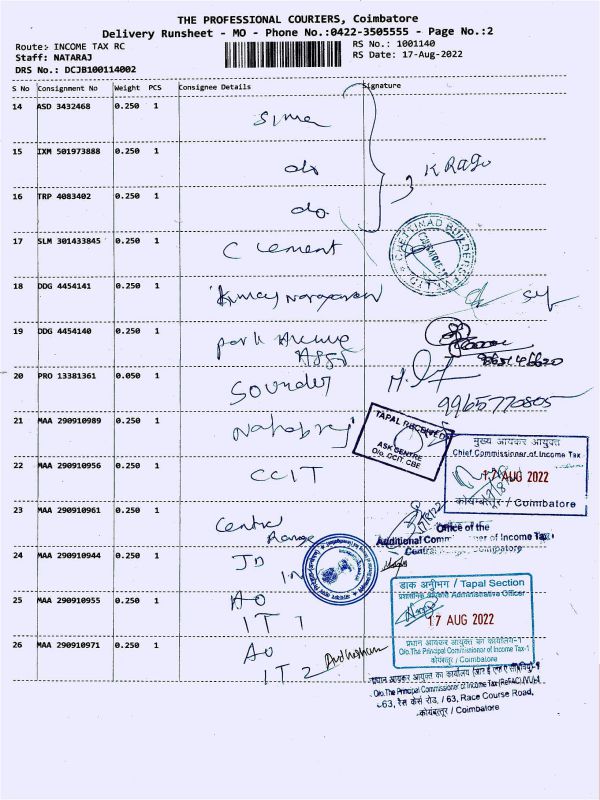 THE PROFESSIONAL COURIERS, Coimbatore
Delivery Runsheet - MO - Phone No.:0422-3505555 - Page No.:2
Route:- INCOME TAX RC
RS No.: 1001140
Staff: NATARAJ
RS Date: 17-Aug-2022
DRS No.: DCJB100114002
S No Consignment No Weight PCS Consignee Details Signature
14 ASD 3432468 0.250 1
15 IXM 501973888 0.250 1 do
K Ragu
16 TRP 4083402 0.250 1 do
CHETTINAD BUILDERS
17 SLM 301433845 0.250 1 C Lement
18 DDG 4454141 0.250 1 Narayanan
19 DDG 4454140 0.250 1 Park Avenue
20 PRO 13381361 0.050 1 Sounder
9965770805
21 MAA 290910989 0.250 1
TAPAL RECEIVED
ASK CENTRE
O/o. CCIT, CBE
मुख्य आयकर आयुक्त
Chief Commissioner of Income Tax
17 AUG 2022
कोयम्बत्तूर / Coimbatore
22 MAA 290910956 0.250 1 CCIT
23 MAA 290910961 0.250 1 Central Range
Office of the
Additional Comm er of Income Tax
24 MAA 290910944 0.250 1 JD
IN
डाक अनुभाग / Tapal Section
Administrative Officer
17 AUG 2022
प्रधान आयकर आयुक्त का कार्यालय-1
O/o.The Principal Commissioner of Income Tax-1
कोयंबत्तूर / Coimbatore
25 MAA 290910955 0.250 1 AO
IT 1
26 MAA 290910971 0.250 1 AO
IT 2
O/o.The Principal Commissioner of Income Tax (ReFAC)
63, रेस कोर्स रोड, / 63, Race Course Road,
कोयंबत्तूर / Coimbatore